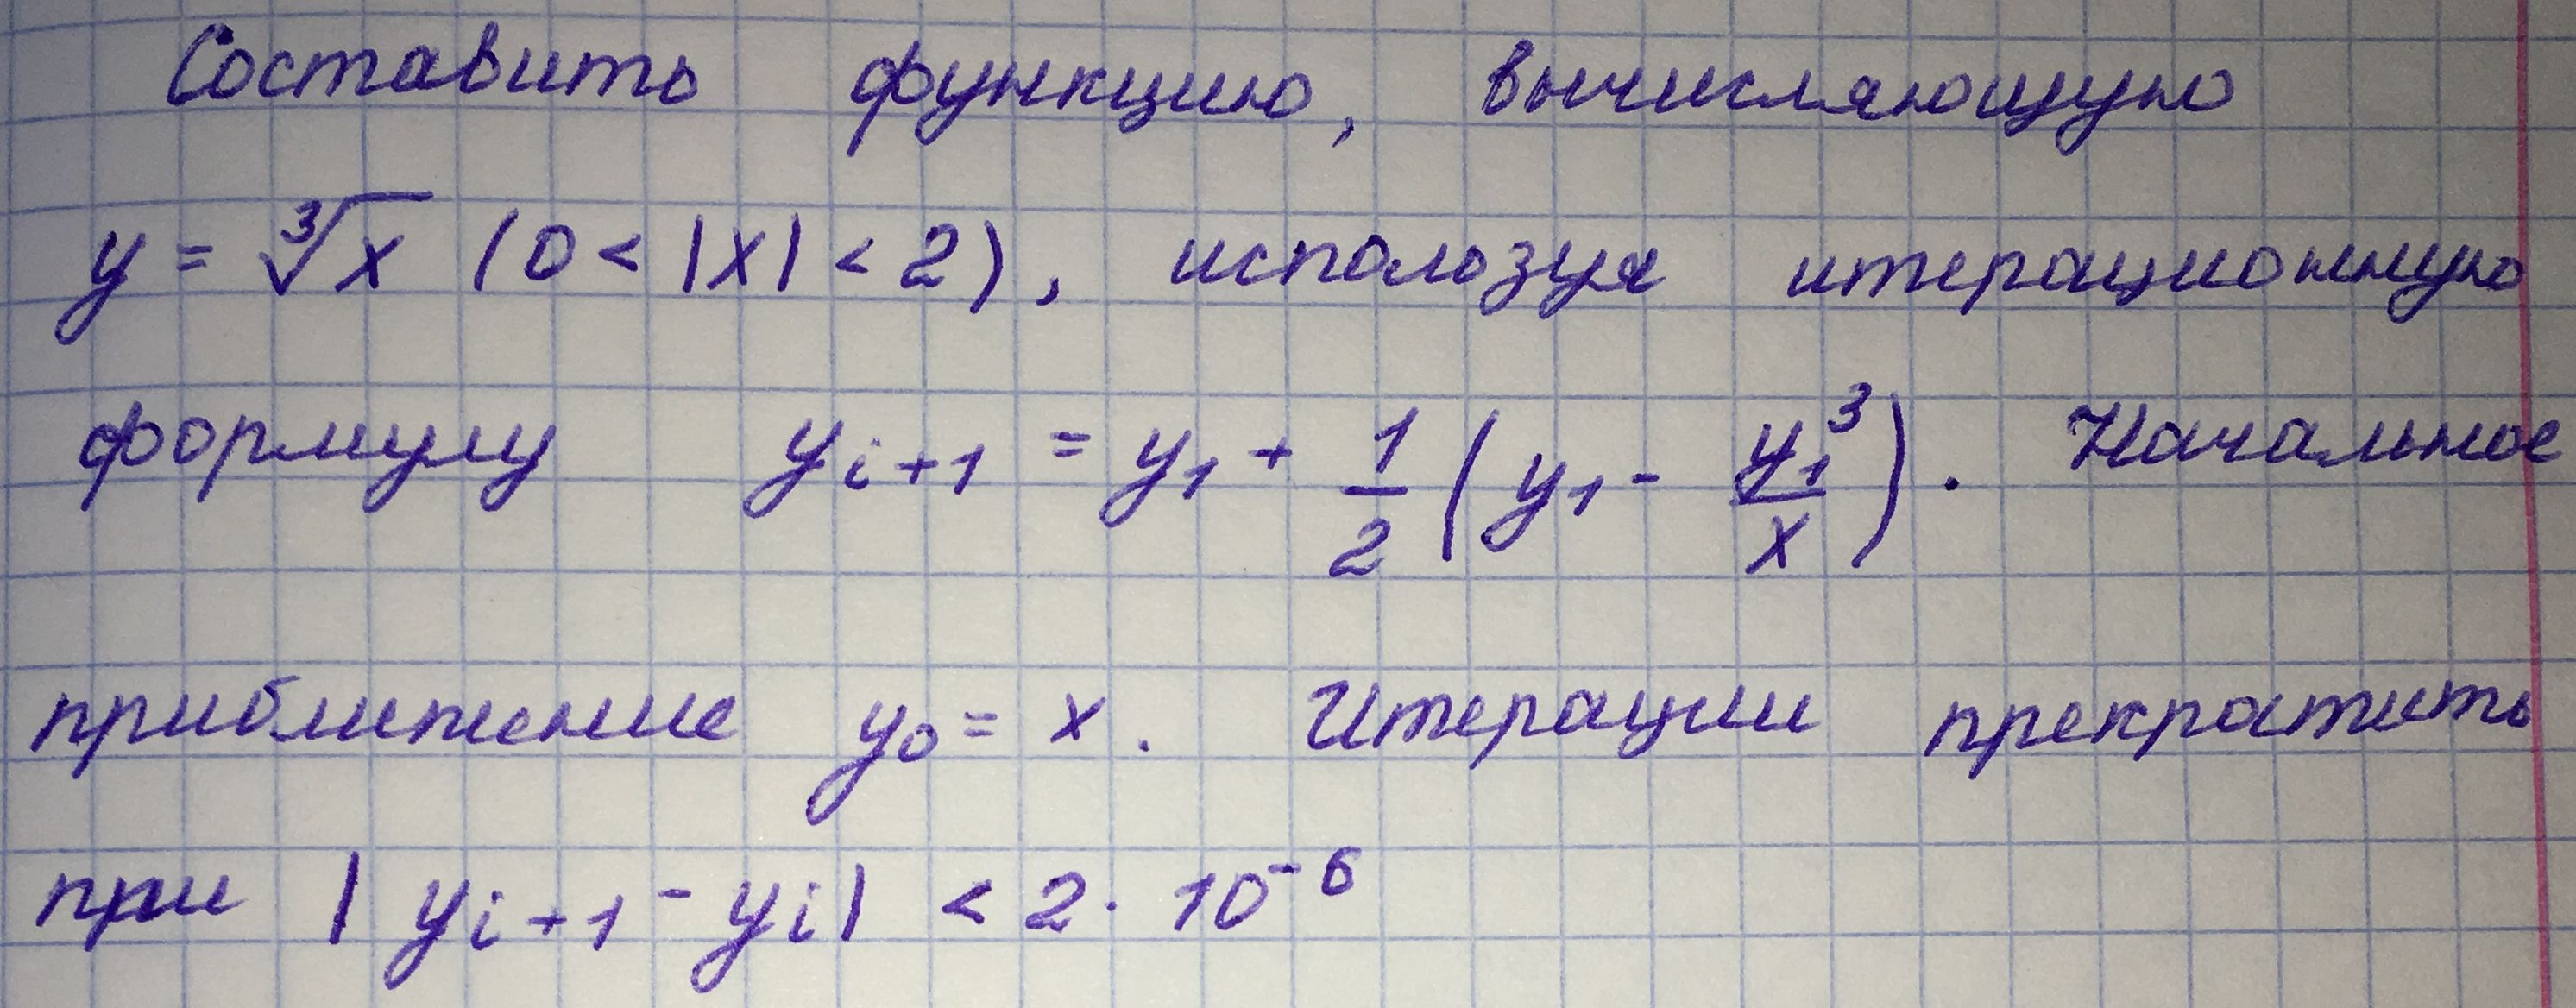 Составить функцию, вычисляющую
y = ∛x (0 < |x| < 2), используя итерационную
формулу y_{i+1} = y_1 + 1/2 (y_1 - y_1^3/x). Начальное
приближение y_0 = x. Итерации прекратить
при | y_{i+1} - y_i | < 2 · 10^{-6}